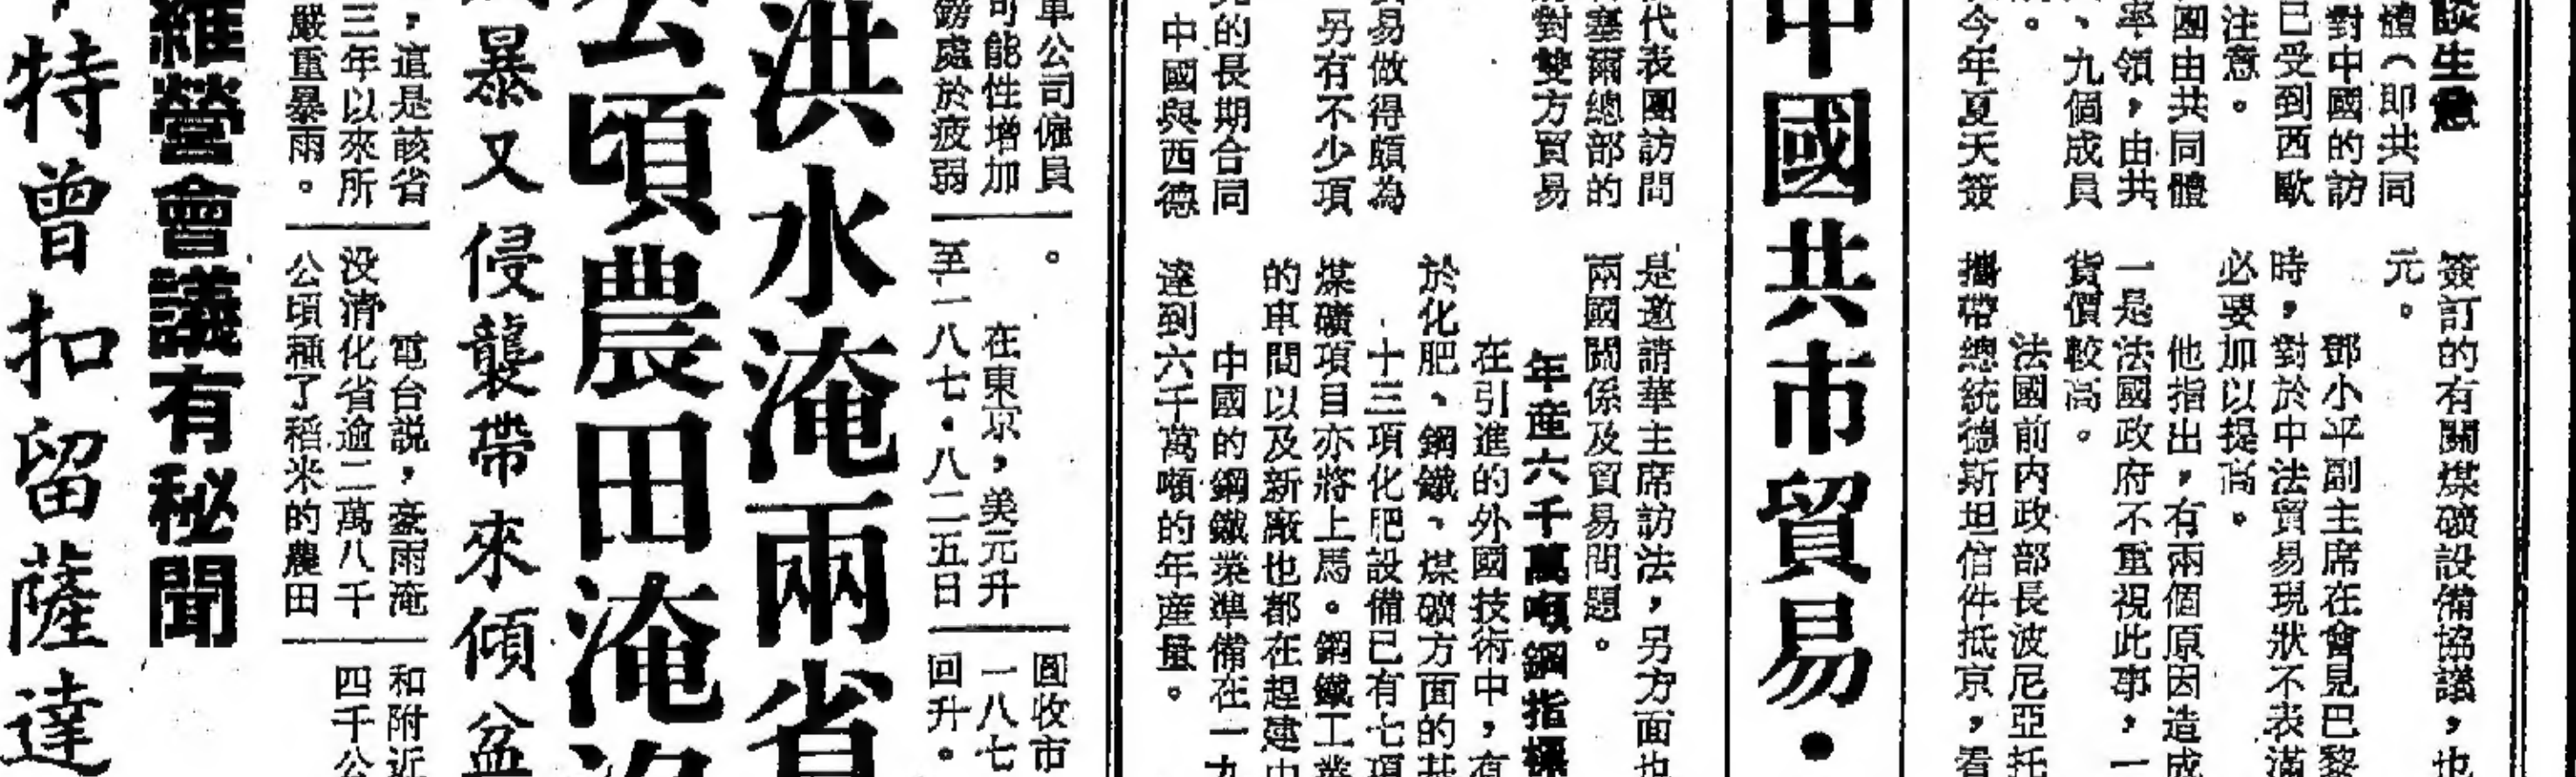 談生意
體（即共同
對中國的訪
已受到西歐
注意。
團由共同體
率領，由共
、九個成員
。
今年夏天簽
簽訂的有關煤礦設備協議，也
元。
鄧小平副主席在會見巴黎
時，對於中法貿易現狀不表滿
必要加以提高。
他指出，有兩個原因造成
一是法國政府不重視此事，一
貨價較高。
法國前內政部長波尼亞托
攜帶總統德斯坦信件抵京，看
中國共市貿易・
代表團訪問
塞爾總部的
對雙方貿易
易做得頗為
另有不少項
的長期合同
中國與西德
是邀請華主席訪法，另方面也
兩國關係及貿易問題。
年產六千萬噸鋼指標
在引進的外國技術中，有
於化肥、鋼鐵、煤礦方面的
十三項化肥設備已有七項
煤礦項目亦將上馬。鋼鐵工業
的車間以及新廠也都在趕建中
中國的鋼鐵業準備在一九
達到六千萬噸的年產量。
車公司僱員
可能性增加
鎊處於疲弱
。
在東京，美元升
至一八七・八二五日
圓收市
一八七
回升。
洪水淹兩省
公頃農田淹沒
暴又侵襲帶來傾盆
，這是該省
三年以來所
嚴重暴雨。
電台説，豪雨淹
没清化省逾二萬八千
公頃種了稻米的農田
和附近
四千公
維營會議有秘聞
特曾扣留薩達